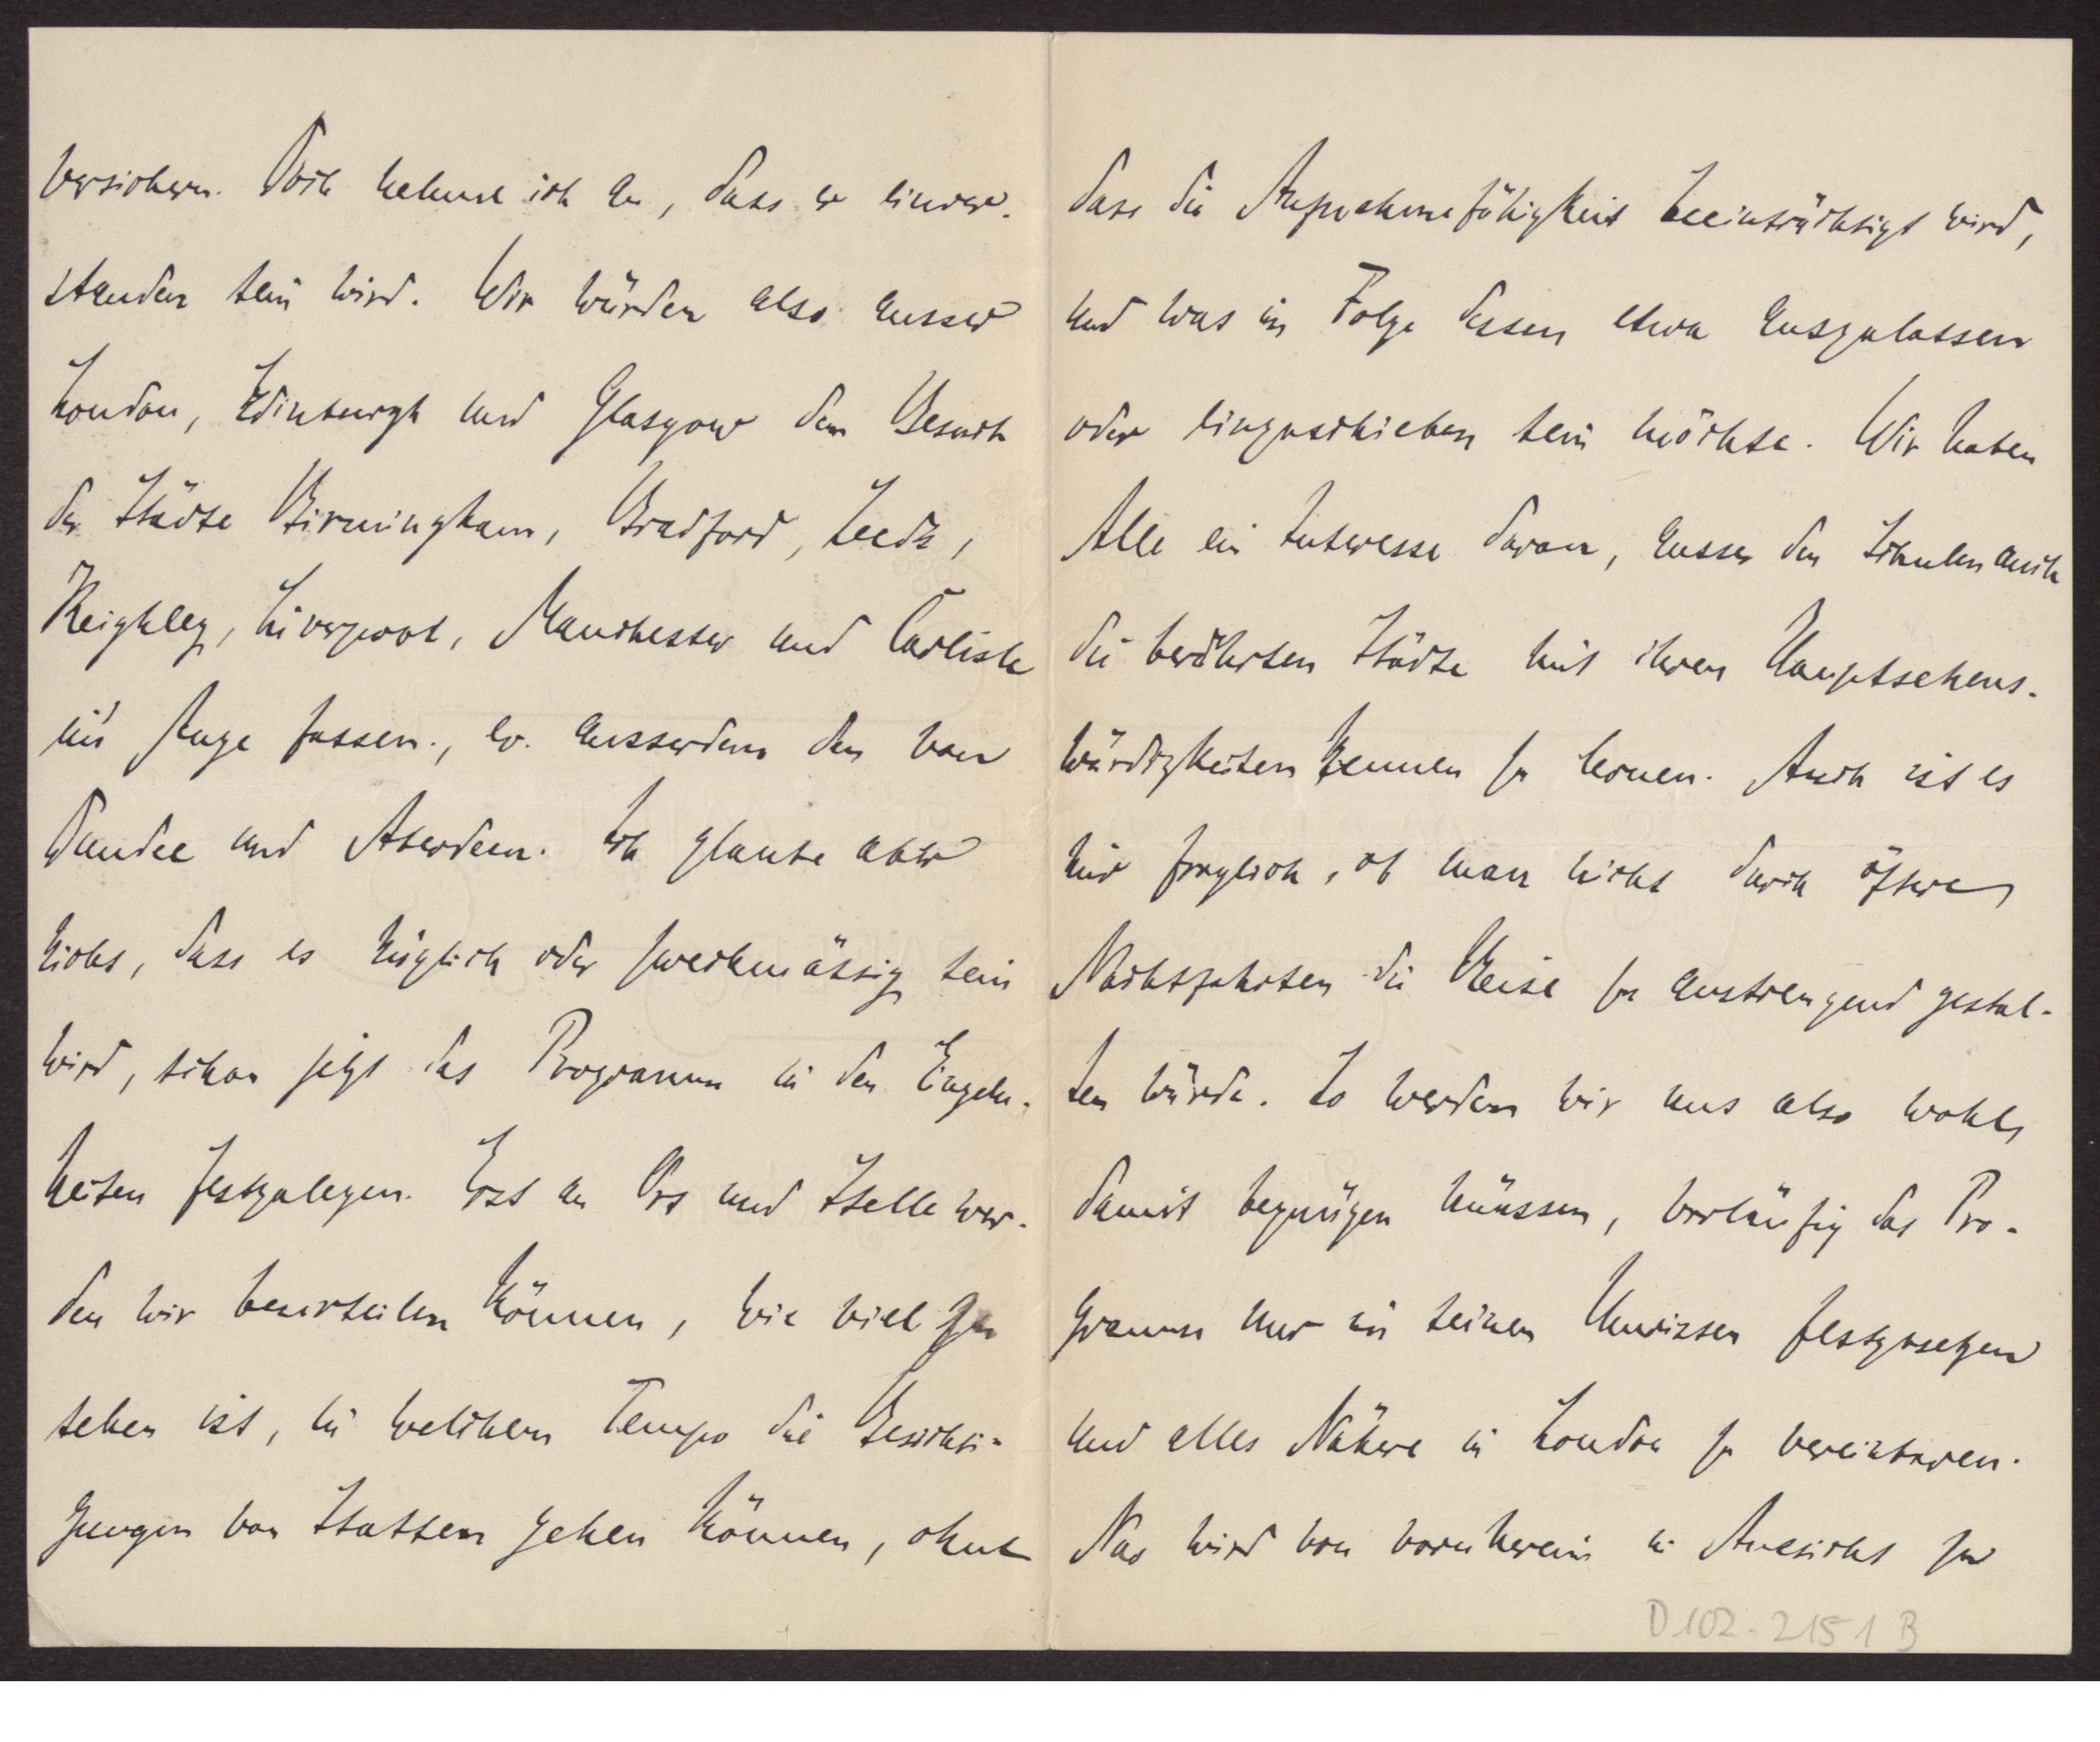 versichern. Doch nehme ich an, dass er einver-
standen sein wird. Wir würden also ausser
London, Edinburgh und Glasgow den Besuch
der Städte Birmingham, Bradford, Leeds,
Keighley, Liverpool, Manchester und Carlisle
in's Auge fassen, ev. ausserdem den von
Dundee und Aberdeen. Ich glaube aber
nicht, dass es möglich oder zweckmässig sein
wird, schon jetzt das Programm in den Einzeln-
heiten festzulegen. Erst an Ort und Stelle wer-
den wir beurteilen können, wie viel zu
sehen ist, in welchem Tempo die Besichti-
gungen von Statten gehen können, ohne
dass die Aufnahmefähigkeit beeinträchtigt wird,
und was in Folge dessen etwa auszulassen
oder einzuschieben sein möchte. Wir haben
Alle ein Interesse daran, ausser den Schulen auch
die berührten Städte mit ihren Hauptsehens-
würdigkeiten kennen zu lernen. Auch ist es
mir fraglich, ob man nicht durch öftere
Nachtfahrten die Reise zu anstrengend gestal-
ten würde. So werden wir uns also wohl
damit begnügen müssen, vorläufig das Pro-
gramm nur in seinen Umrissen festzusetzen
und alles Nähere in London zu vereinbaren.
Nur wird von vornherein in Aussicht zu
D 102-2151 B